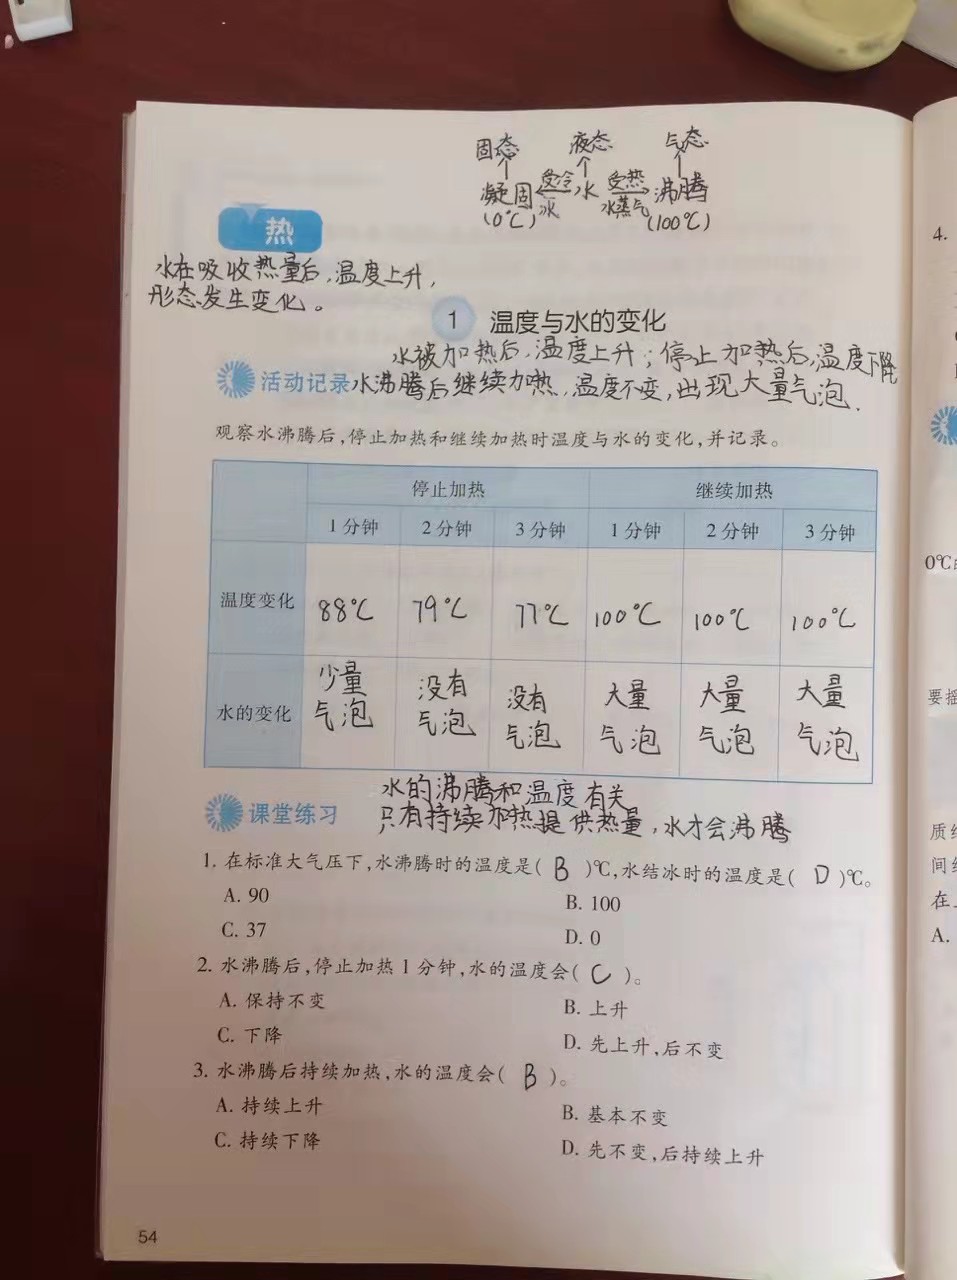 固态 液态 气态
凝固 受冷 水 受热 沸腾
(0℃) 冰 水蒸气 (100℃)
热
水在吸收热量后,温度上升,
形态发生变化。
1 温度与水的变化
水被加热后,温度上升;停止加热后,温度下降
活动记录 水沸腾后继续加热,温度不变,出现大量气泡.
观察水沸腾后,停止加热和继续加热时温度与水的变化,并记录。
停止加热 继续加热
1分钟 2分钟 3分钟 1分钟 2分钟 3分钟
温度变化 88℃ 79℃ 77℃ 100℃ 100℃ 100℃
水的变化 少量气泡 没有气泡 没有气泡 大量气泡 大量气泡 大量气泡
水的沸腾和温度有关
课堂练习 只有持续加热提供热量,水才会沸腾
1. 在标准大气压下,水沸腾时的温度是( B )℃,水结冰时的温度是( D )℃。
A. 90 B. 100
C. 37 D. 0
2. 水沸腾后,停止加热1分钟,水的温度会( C )。
A. 保持不变 B. 上升
C. 下降 D. 先上升,后不变
3. 水沸腾后持续加热,水的温度会( B )。
A. 持续上升 B. 基本不变
C. 持续下降 D. 先不变,后持续上升
54
4.
0℃
要摇
质
间
在
A.